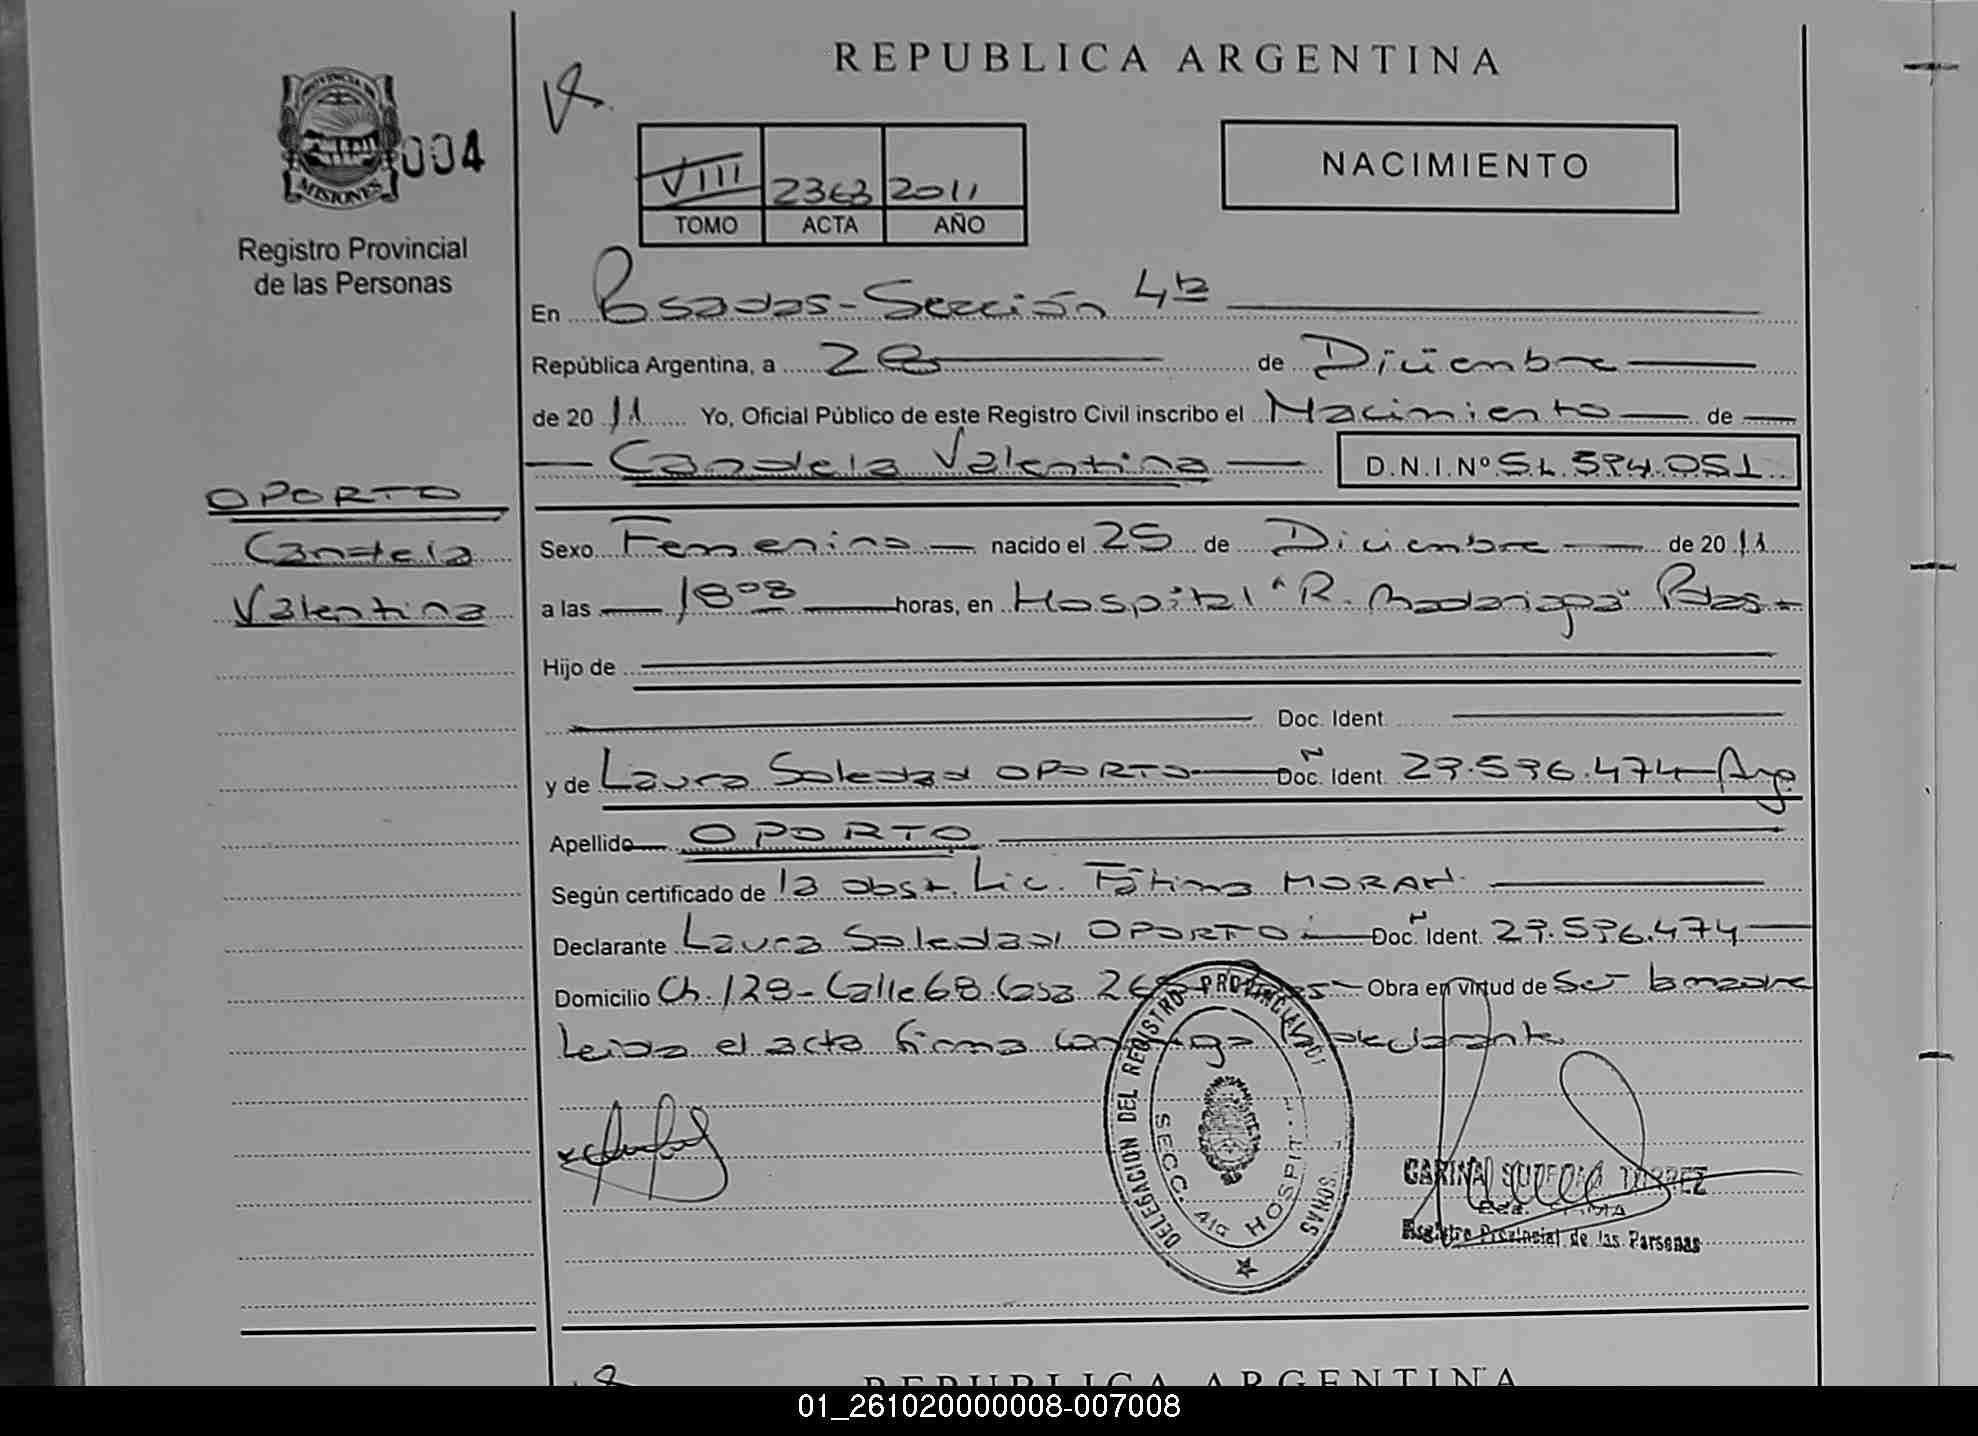 REPUBLICA ARGENTINA
PROVINCIA DE
MISIONES
004
Registro Provincial
de las Personas
VIII 2363 2011
TOMO ACTA AÑO
NACIMIENTO
En Posadas-Sección 4ta
República Argentina, a 28 de Diciembre
de 2011 Yo, Oficial Público de este Registro Civil inscribo el Nacimiento de
Candela Valentina D.N.I.Nº 51.594.051
OPORTO
Candela
Valentina
Sexo Femenino nacido el 25 de Diciembre de 2011
a las 18:08 horas, en Hospital "R. Madariaga" Pdas
Hijo de
Doc. Ident.
y de Laura Soledad OPORTO Doc. Ident. 29.596.474 Arg.
Apellido OPORTO
Según certificado de la obst. Lic. Fátima MORAN
Declarante Laura Soledad OPORTO Doc. Ident. 29.596.474
Domicilio Ch. 128- Calle 68 Casa Obra en virtud de Ser la madre
Leida el acta firma conmigo la declarante
DELEGACION DEL REGISTRO PROVINCIAL
SECC. 4ta HOSPIT
CARINA
Registro Provincial de las Personas
REPUBLICA ARGENTINA
01_261020000008-007008